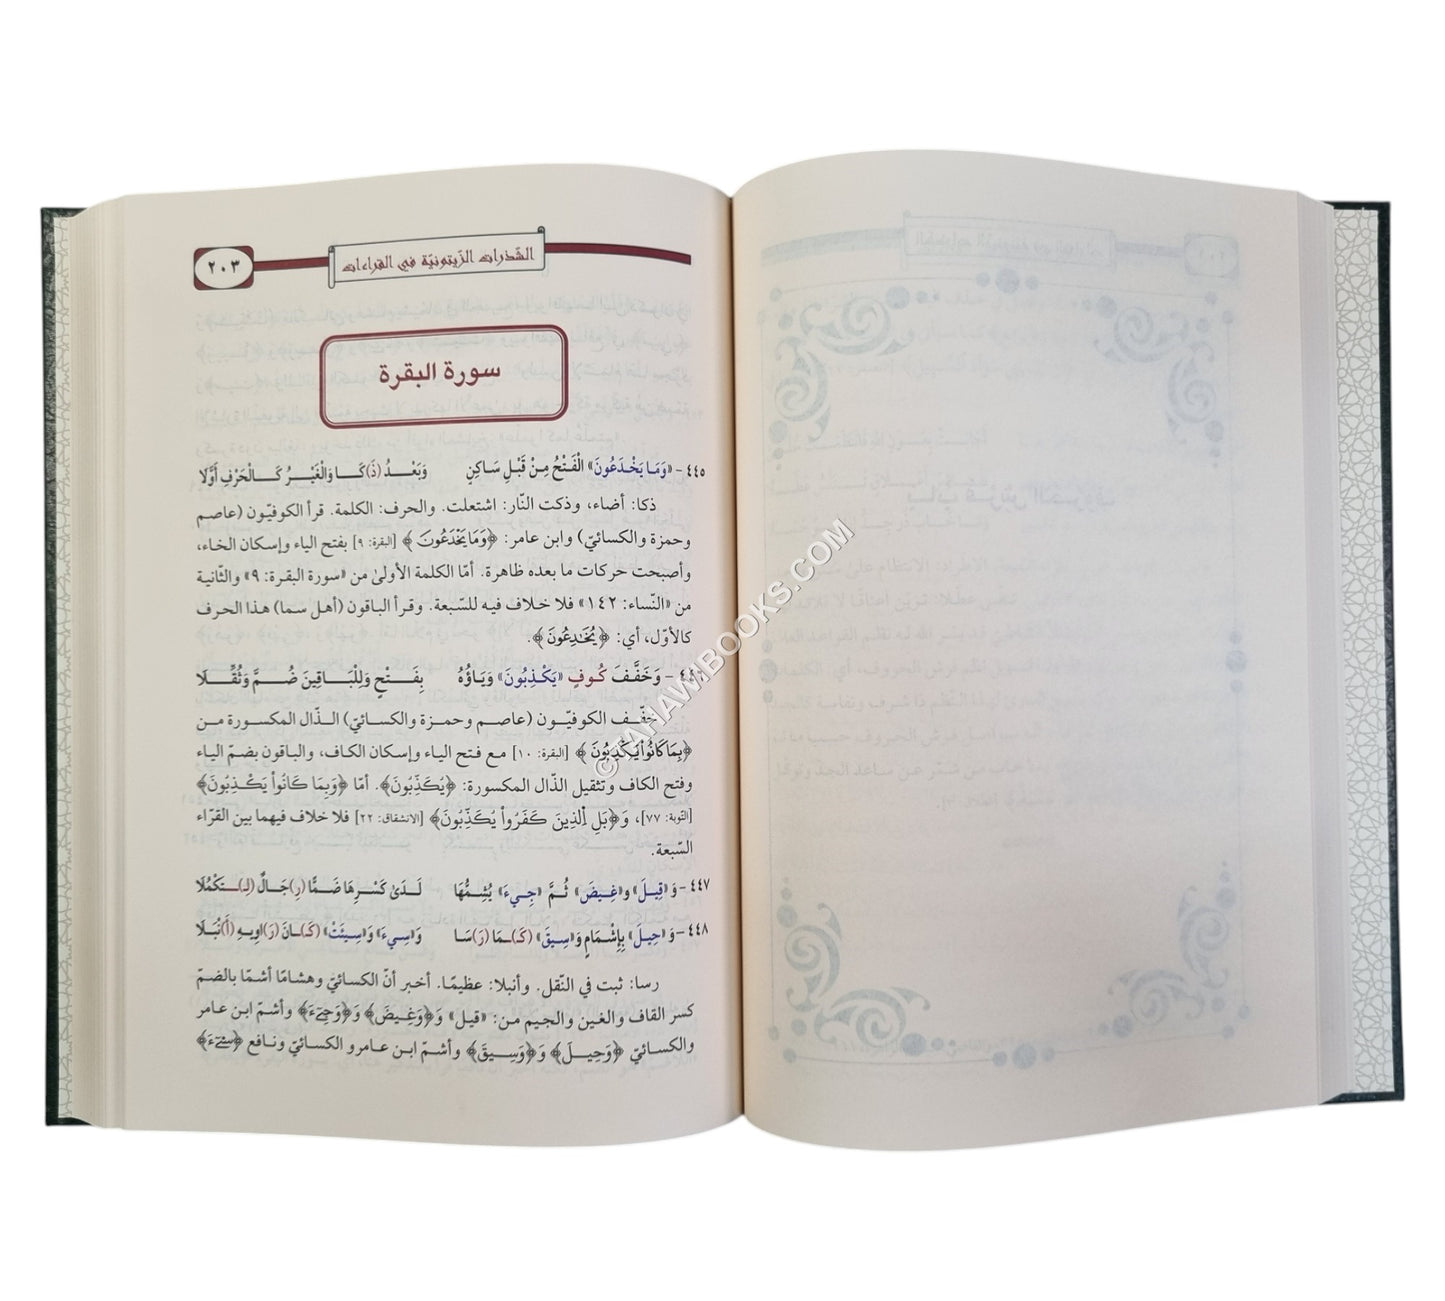 الشّذرات الزّيتونيّة في القراءات
٢٠٣
سورة البقرة
٤٤٥- «وَمَا يَخْدَعُونَ» الْفَتْحُ مِنْ قَبْلِ سَاكِنٍ وَبَعْدُ (ذَ)كَا وَالْغَيْرُ كَالْحَرْفِ أَوَّلَا
ذكا: أضاء، وذكت النّار: اشتعلت. والحرف: الكلمة. قرأ الكوفيّون (عاصم
وحمزة والكسائيّ) وابن عامر: ﴿وَمَا يَخْدَعُونَ﴾ [البقرة: ٩] بفتح الياء وإسكان الخاء،
وأصبحت حركات ما بعده ظاهرة. أمّا الكلمة الأولىٰ من «سورة البقرة: ٩» والثّانية
من «النّساء: ١٤٢» فلا خلاف فيه للسّبعة. وقرأ الباقون (أهل سما) هذا الحرف
كالأوّل، أي: ﴿يُخَٰدِعُونَ﴾.
٤٤٦- وَخَفَّفَ كُوفٍ «يَكْذِبُونَ» وَيَاؤُهُ بِفَتْحٍ وَلِلْبَاقِينَ ضُمَّ وَثُقِّلَا
خفّف الكوفيّون (عاصم وحمزة والكسائيّ) الذّال المكسورة من
﴿بِمَا كَانُواْ يَكْذِبُونَ﴾ [البقرة: ١٠] مع فتح الياء وإسكان الكاف، والباقون بضمّ الياء
وفتح الكاف وتثقيل الذّال المكسورة: ﴿يُكَذِّبُونَ﴾. أمّا ﴿وَبِمَا كَانُواْ يَكْذِبُونَ﴾
[التّوبة: ٧٧]، وَ﴿بَلِ اِلَّذِينَ كَفَرُواْ يُكَذِّبُونَ﴾ [الانشقاق: ٢٢] فلا خلاف فيهما بين القرّاء
السّبعة.
٤٤٧- وَ«قِيلَ» و«غِيضَ» ثُمَّ «جِيءَ» يُشِمُّهَا لَدَىٰ كَسْرِهَا ضَمًّا (رِ)جَالٌ (لِـ)ـتَكْمُلَا
٤٤٨- وَ«حِيلَ» بِإِشْمَامٍ وَ«سِيقَ» (كَـ)ـمَا (رَ)سَا وَ«سِيءَ» وَ«سِيئَتْ» (كَـ)ـانَ (رَ)اوِيهِ (أَ)نْبَلَا
رسا: ثبت في النّقل. وأنبلا: عظيمًا. أخبر أنّ الكسائيّ وهشامًا أشمّا بالضّمّ
كسر القاف والغين والجيم من: «قيل» وَ﴿وَغِيضَ﴾ وَ﴿وَجِےٓءَ﴾ وأشمّ ابن عامر
والكسائيّ ﴿وَحِيلَ﴾ وَ﴿وَسِيقَ﴾ وأشمّ ابن عامر و الكسائيّ ونافع ﴿سِےٓءَ﴾
©TAHAWIBOOKS.COM